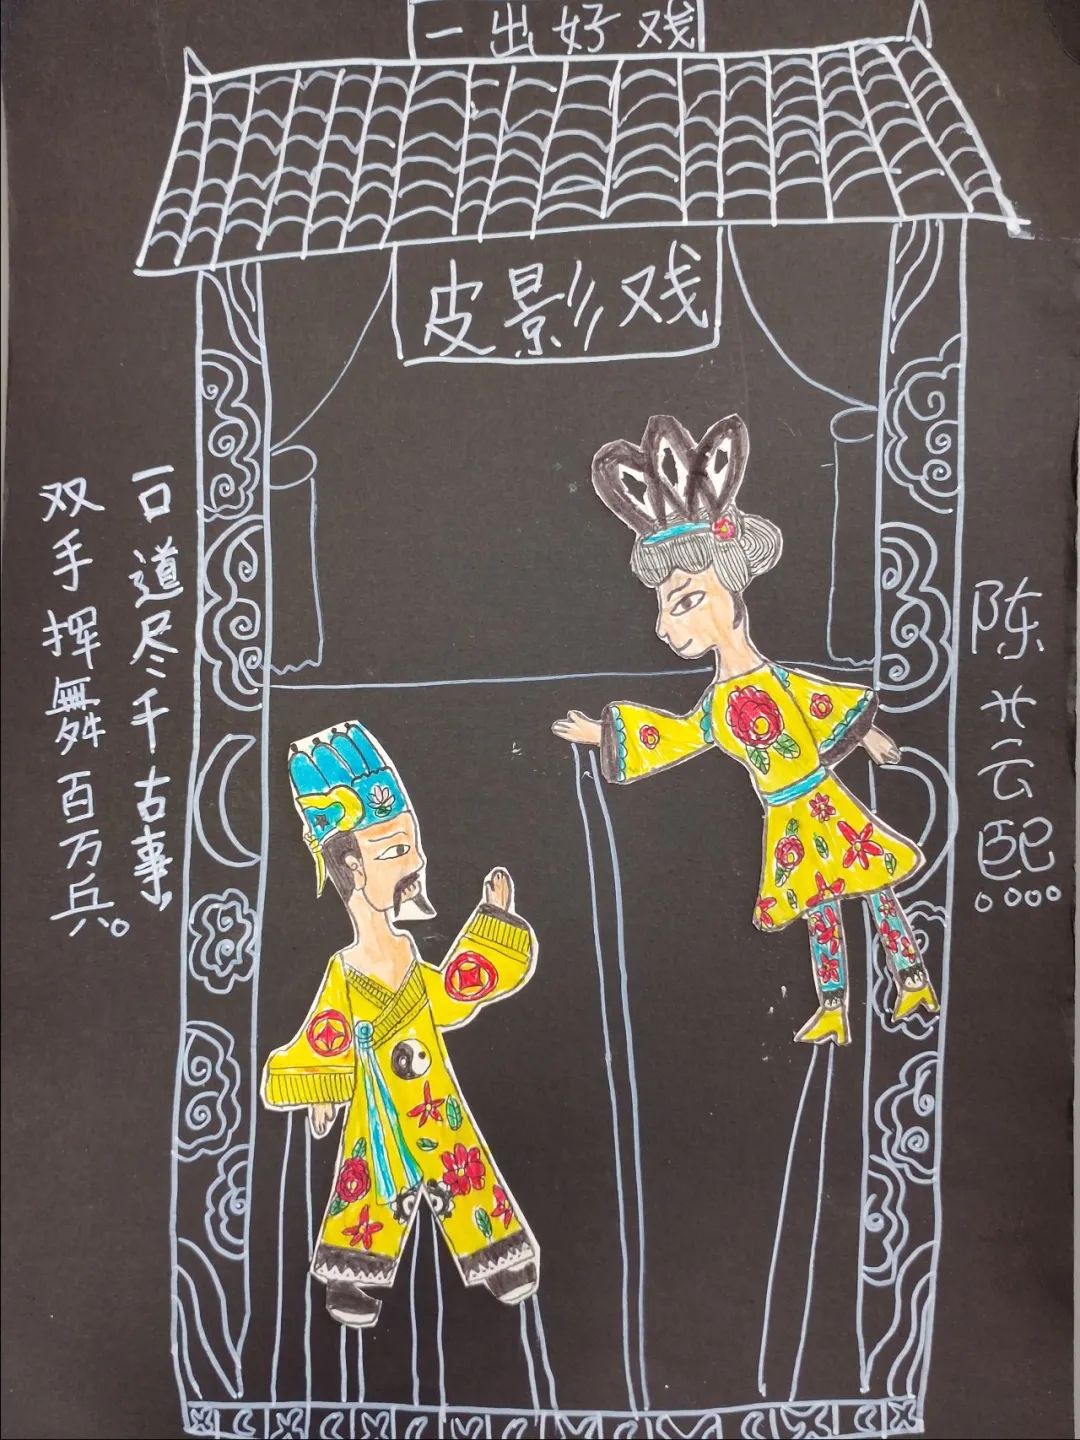 一出好戏
皮影戏
一口道尽千古事，
双手挥舞百万兵。
陈芸熙